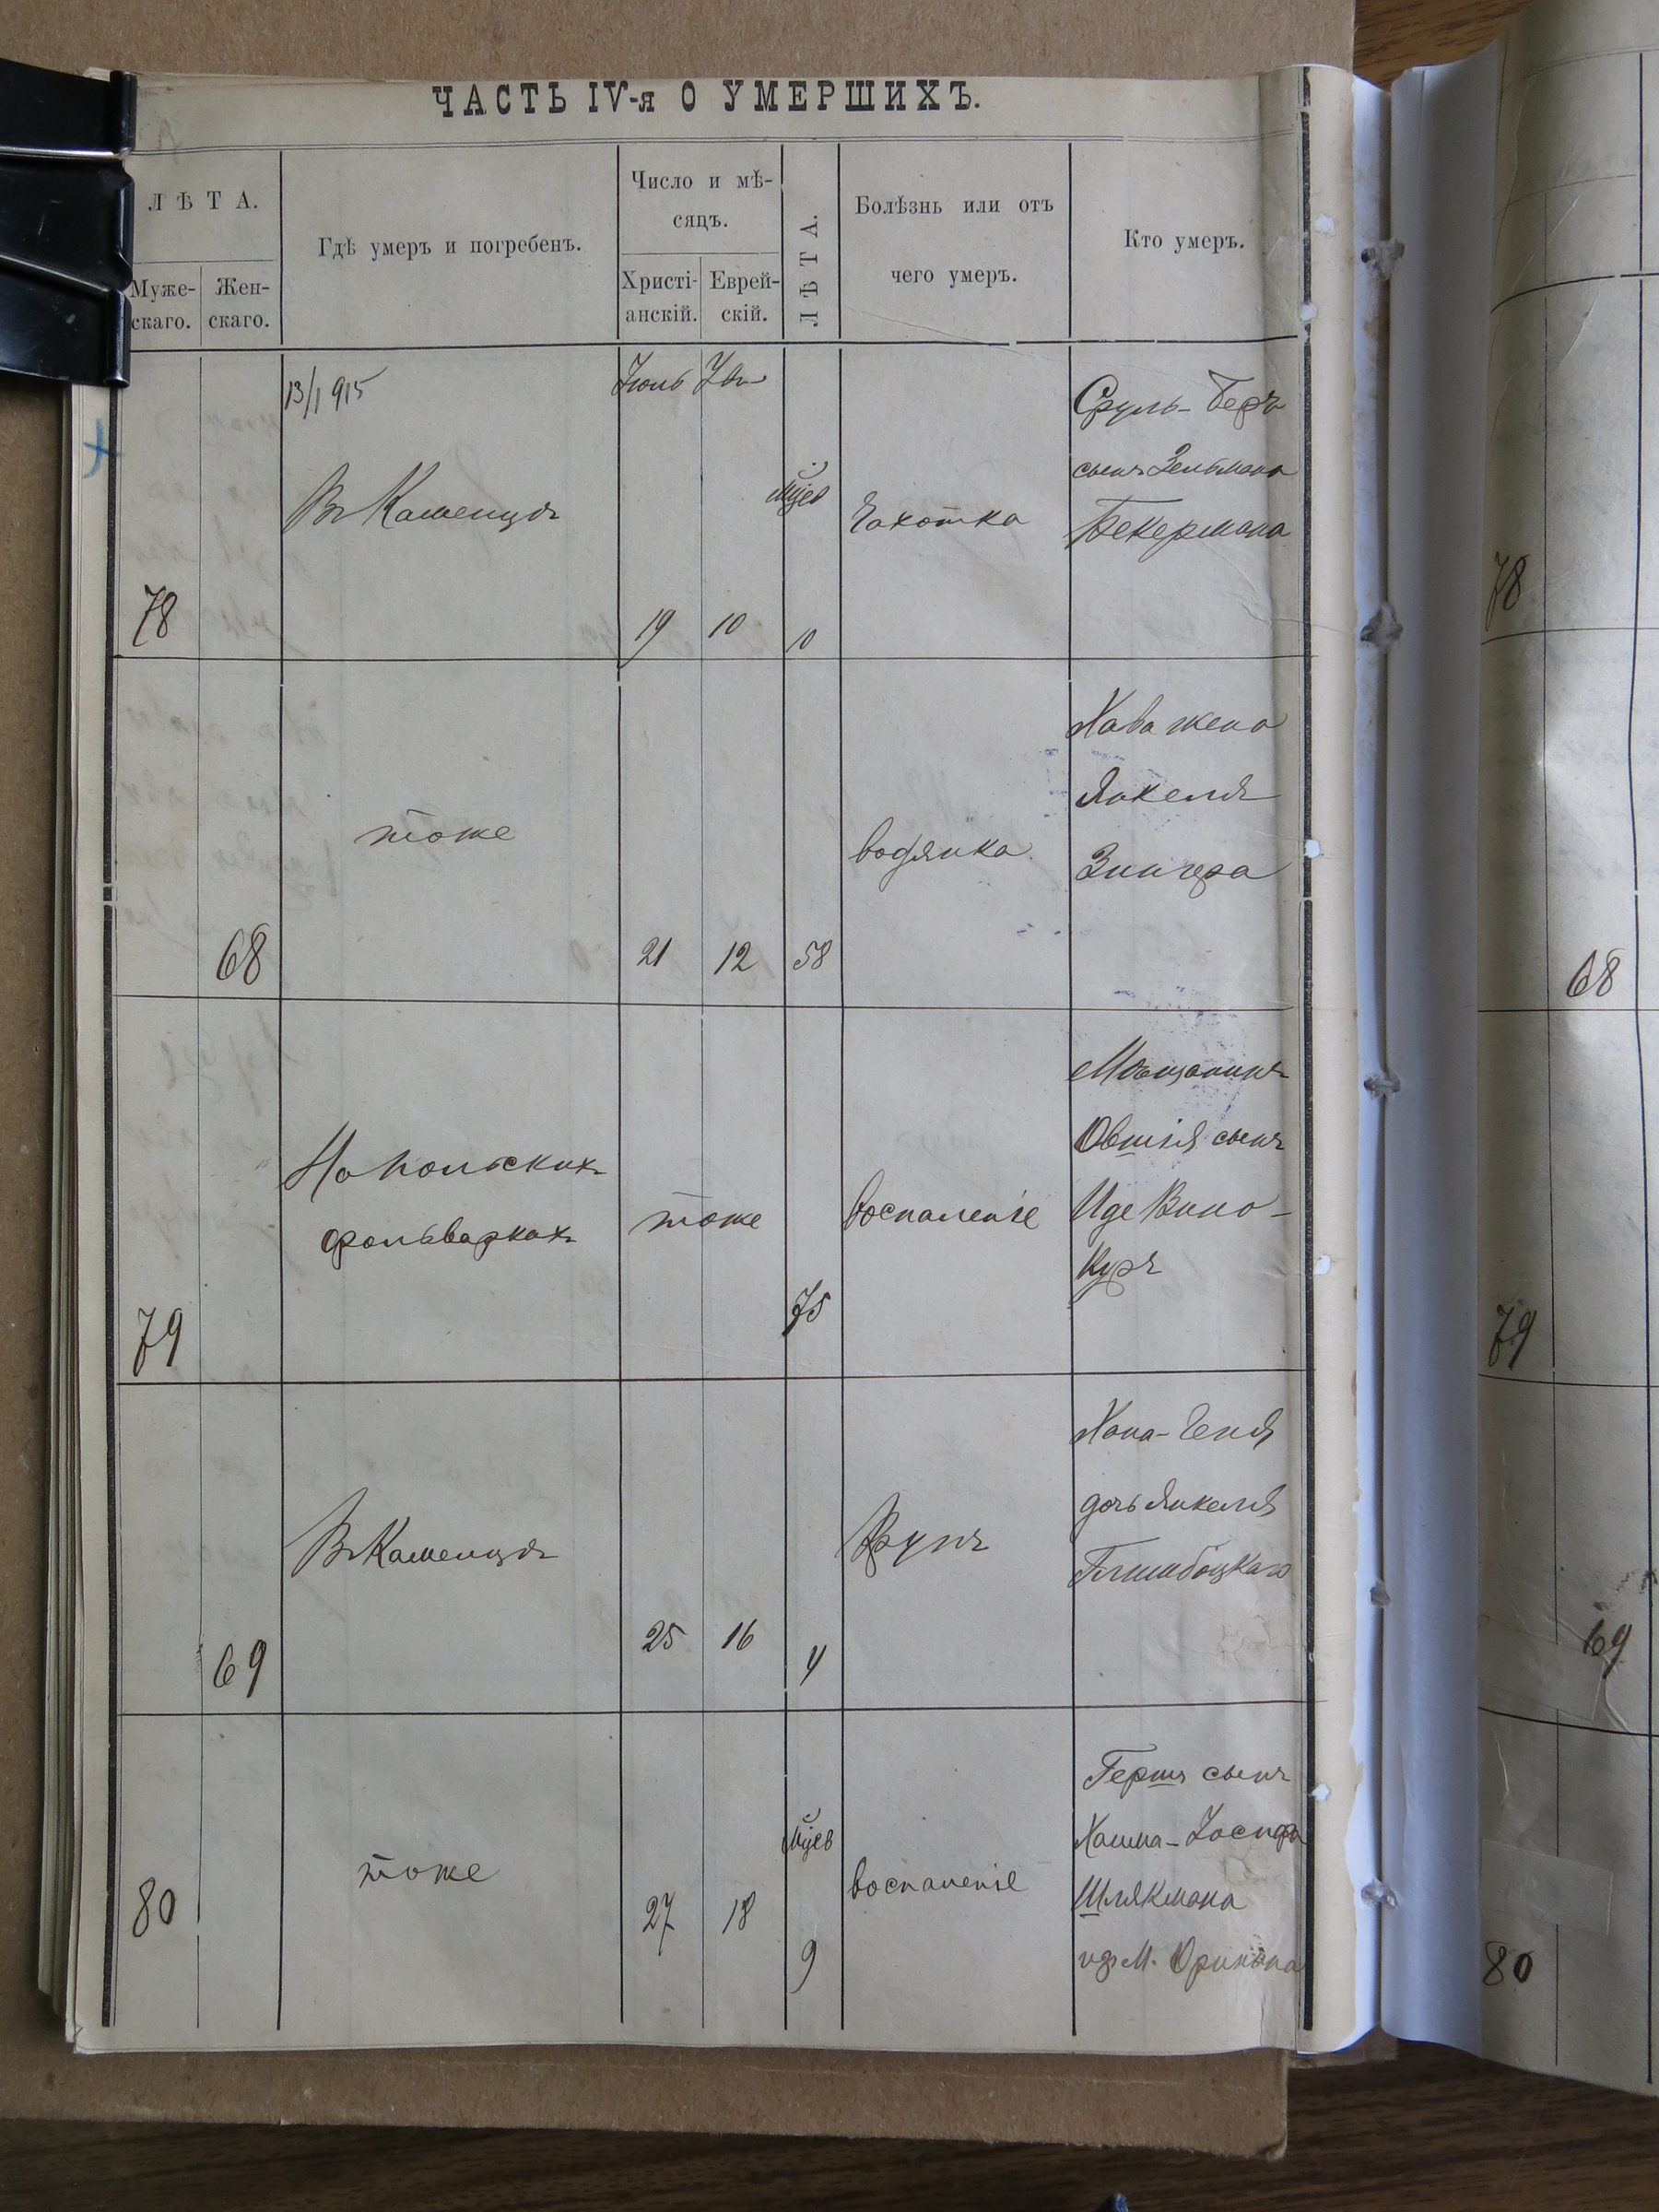 ЧАСТЬ IV-я О УМЕРШИХЪ.
ЛѢТА.
Гдѣ умеръ и погребенъ.
Число и мѣ-
сяцъ.
ЛѢТА.
Болѣзнь или отъ
чего умеръ.
Кто умеръ.
Муже-
скаго.
Жен-
скаго.
Христі-
анскій.
Еврей-
скій.
13/I 915
Іюль
Въ Каменцѣ
Чахотка
Сруль-Беръ
сынъ Зельмана
Бекермана
78
19
10
10
78
тоже
водянка
Хава жена
Янкеля
Зингера
68
21
12
58
68
На польскихъ
фольваркахъ
тоже
воспаленіе
Мѣщанинъ
Овшія сынъ
Иде Вино-
куръ
79
75
79
Въ Каменцѣ
Крупъ
Хана-Геня
дочь Янкеля
69
25
16
4
69
тоже
воспаленіе
Гершъ сынъ
Хаима-Іосифа
Шлякмана
изъ М. Оринина
80
27
18
9
80